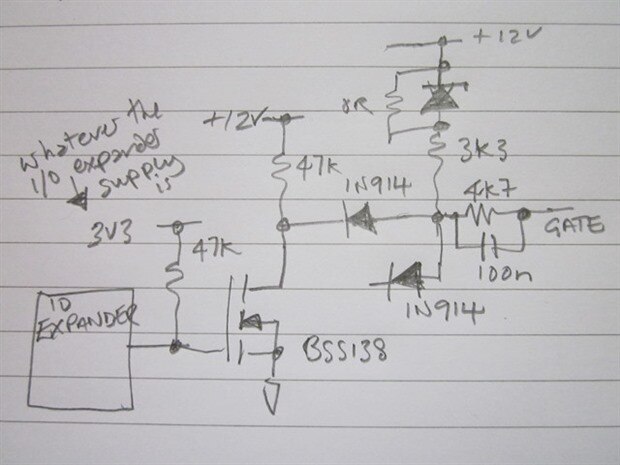 +12V
0R
3K3
+12V
47K
1N914
4K7
GATE
100n
1N914
whatever the
I/O expander
supply
is
3V3
47K
IO
EXPANDER
BSS138